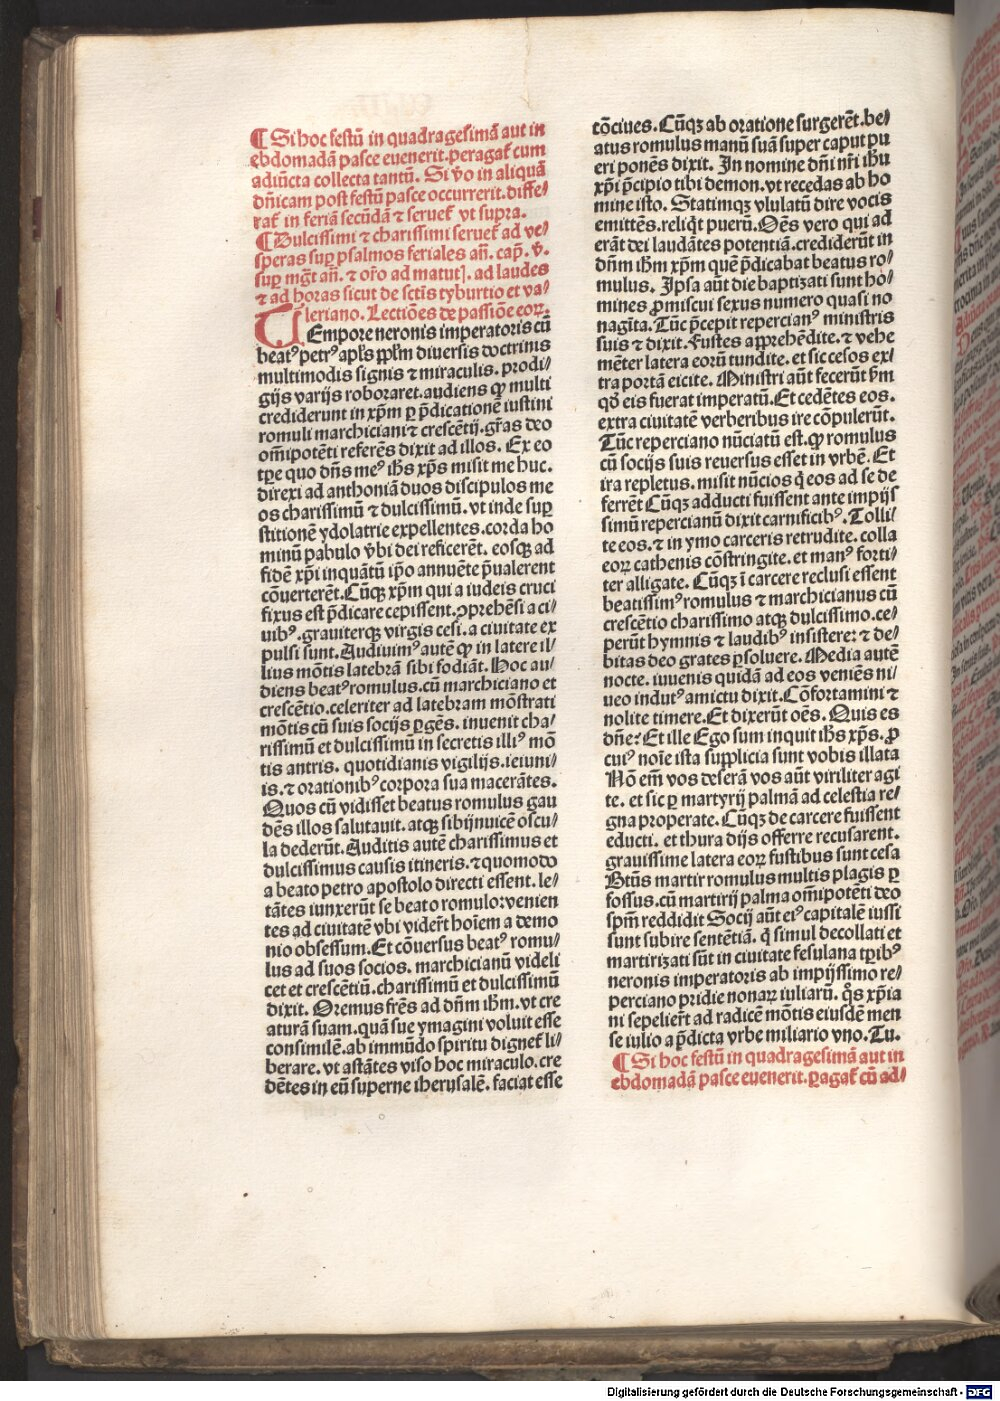 ¶ Si hoc festū in quadragesimā aut in
ebdomadā pasce euenerit.peragat̄ cum
adiūcta collecta tantū. Si v̊o in aliquā
dn̄icam post festū pasce occurrerit.diffe⸗
rat̄ in feriā secūdā ⁊ seruet̄ vt supra.
¶ Dulcissimi ⁊ charissimi seruet̄ ad ve⸗
speras suꝑ psalmos feriales an̄. cap̄. v̊.
suꝑ mḡt an̄. ⁊ or̄o ad matut̄. ad laudes
⁊ ad horas sicut de sctīs tyburtio et va⸗
leriano. Lectiōes de passiōe eoꝝ.
TEmpore neronis imperatoris cū
beatꝰ petrꝰ apl̄s ppl̄m diuersis doctrinis
multimodis signis ⁊ miraculis. prodi⸗
gijs varijs roboraret.audiens ꝙ multi
crediderunt in xp̄m ꝑ p̄dicationē iustini
romuli marchiciani ⁊ crescētij.gr̄as deo
om̄ipotēti referēs dixit ad illos. Ex eo
tp̄e quo dn̄s meꝰ ih̄s xp̄s misit me huc.
direxi ad anthoniā duos discipulos me
os charissimū ⁊ dulcissimū. vt inde suꝑ
stitionē ydolatrie expellentes.corda ho
minū pabulo v̄bi dei reficerēt. eosqꝫ ad
fidē xp̄i inquātū ip̄o annuēte p̄ualerent
cōuerterēt.Cūqꝫ xp̄m qui a iudeis cruci
fixus est p̄dicare cepissent.ꝯprehēsi a ci⸗
uibꝰ.grauiterqꝫ virgis cesi.a ciuitate ex
pulsi sunt.Audiuimꝰ autē ꝙ in latere il⸗
lius mōtis latebrā sibi fodiāt. Hoc au⸗
diens beatꝰ romulus.cū marchiciano et
crescētio.celeriter ad latebram mōstrati
mōtis cū suis socijs ꝑgēs. inuenit cha⸗
rissimū et dulcissimū in secretis illiꝰ mō
tis antris. quotidianis vigilijs.ieiuni⸗
is.⁊ orationibꝰ corpora sua macerātes.
Quos cū vidisset beatus romulus gau
dēs illos salutauit. atqꝫ sibijnuicē oscu⸗
la dederūt.Auditis autē charissimus et
dulcissimus causis itineris.⁊ quomodo
a beato petro apostolo directi essent. le⸗
tātes iunxerūt se beato romulo:venien
tes ad ciuitatē vbi vider̄t hoīem a demo
nio obsessum.Et cōuersus beatꝰ romu⸗
lus ad suos socios. marchicianū videli
cet et crescētiū.charissimū et dulcissimū
dixit. Oremus fr̄es ad dn̄m ih̄m. vt cre
aturā suam.quā sue ymagini voluit esse
consimilē.ab immūdo spiritu dignet̄ li⸗
berare. vt astātes viso hoc miraculo.cre
dētes in eū superne iherusalē. faciat esse
tōciues.Cūqꝫ ab oratione surgerēt.be⸗
atus romulus manū suā super caput pu
eri ponēs dixit. In nomine dn̄i nr̄i ih̄u
xp̄i p̄cipio tibi demon.vt recedas ab ho
mine isto. Statimqꝫ vlulatū dire vocis
emittēs.reliq̄t puerū.Oēs vero qui ad
erāt dei laudātes potentiā.crediderūt in
dn̄m ih̄m xp̄m quē p̄dicabat beatus ro⸗
mulus. Ipsa aūt die baptizati sunt ho⸗
mines ꝓmiscui sexus numero quasi no
nagīta.Tūc p̄cepit repercianꝰ ministris
suis ⁊ dixit.Fustes apprehēdite.⁊ vehe
mēter latera eorū tundite. et sic cesos ex⸗
tra portā eicite. Ministri aūt fecerūt ꝑm
qd̄ eis fuerat imperatū.Et cedētes eos.
extra ciuitatē verberibus ire cōpulerūt.
Tūc reperciano nūciatū est.ꝙ romulus
cū socijs suis reuersus esset in vrbē. Et
ira repletus. misit nūcios q̇ eos ad se de
ferrēt Cūqꝫ adducti fuissent ante impijs
simū repercianū dixit carnificibꝰ. Tolli⸗
te eos.⁊ in ymo carceris retrudite. colla
eoꝝ cathenis cōstringite. et manꝰ forti⸗
ter alligate. Cūqꝫ ī carcere reclusi essent
beatissimꝰ romulus ⁊ marchicianus cū
crescētio charissimo atqꝫ dulcissimo.ce⸗
perūt hymnis ⁊ laudibꝰ insistere: ⁊ de⸗
bitas deo grates ꝑsoluere. Media autē
nocte. iuuenis quidā ad eos veniēs ni⸗
ueo indutꝰ amictu dixit. Cōfortamini ⁊
nolite timere. Et dixerūt oēs. Quis es
dn̄e? Et ille Ego sum inquit ih̄s xp̄s. ꝓ
cuiꝰ noīe ista supplicia sunt vobis illata
Nō em̄ vos deserā vos aūt viriliter agi
te. et sic ꝑ martyrij palmā ad celestia re⸗
gna properate. Cūqꝫ de carcere fuissent
educti. et thura dijs offerre recusarent.
grauissime latera eoꝝ fustibus sunt cesa
Btūs martir romulus multis plagis ꝑ
fossus.cū martirij palma om̄ipotēti deo
spm̄ reddidit Socij aūt eiꝰ capitalē iussi
sunt subire sentētiā. q̇ simul decollati et
martirizati sūt in ciuitate fesulana tp̄ibꝰ
neronis imperatoris ab impijssimo re⸗
perciano pridie nonaꝝ iuliarū. q̊s xp̄ia
ni sepelier̄t ad radicē mōtis eiusdē men
se iulio a p̄dicta vrbe miliario vno.Tu.
¶ Si hoc festū in quadragesimā aut in
ebdomadā pasce euenerit.ꝑagat̄ cū ad⸗
Digitalisierung gefördert durch die Deutsche Forschungsgemeinschaft - DFG